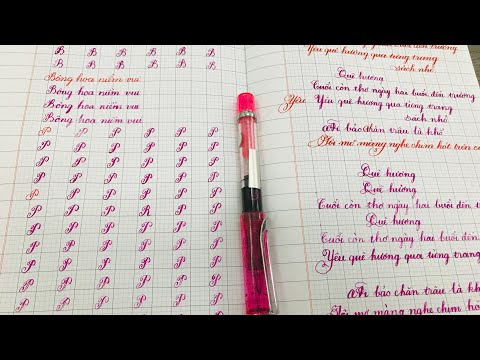 B B B B B B
B B B B B B
B B B B B B
Bông hoa niềm vui
Bông hoa niềm vui
Bông hoa niềm vui
Bông hoa niềm vui
P P P P P P
P P P P P P
P P P P P P
P P P P P P
P P P P P P
P P P R P P
P P P P P P
P P P P P P
P P P P P P
P P P P P P
P P P P P P
Yêu quê hương qua từng trang
sách nhỏ
Quê hương
Cuổi còn thơ ngày hai buổi đến trường
Yêu Yêu quê hương qua từng trang
sach nhỏ
Ai bảo chăn trâu là khổ
Tôi mơ màng nghe chim hót trên c
Quê hương
Quê hương
Cuổi còn thơ ngày hai buổi đến t
Quê hương
Cuổi còn thơ ngày hai buổi đến
Yêu quê hương qua từng trang
Ai bảo chăn trâu là kh
Tôi mơ màng nghe chim hó